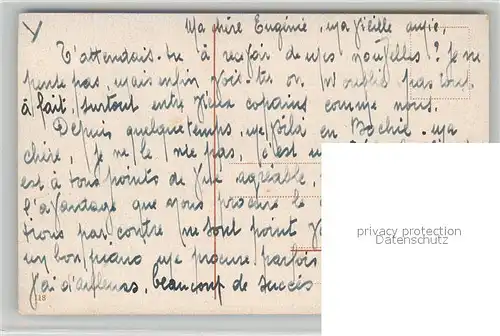 Ma chère Eugénie, ma vieille amie,
T'attendais-tu à recevoir de mes nouvelles? Je ne
pense pas, mais enfin vois-tu on n'oublie pas tout
à fait, surtout entre vieux copains comme nous.
Depuis quelque temps, me voilà en Bochie. Ma
chère, je ne le nie pas, c'est un
est à tous points de vue agréable,
l'avantage que nous procure le
trons par contre ne sont point
un bon piano me procure parfois
J'ai d'ailleurs, beaucoup de succès
privacy protection
Datenschutz